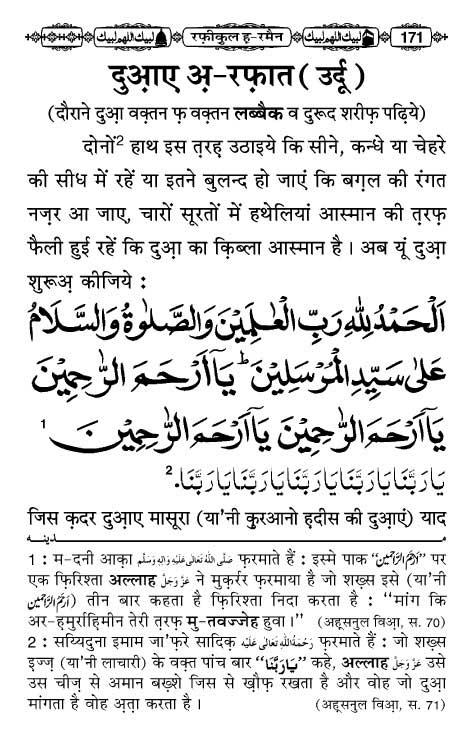 لبيك اللهم لبيك रफ़ीक़ुल ह-रमैन لبيك اللهم لبيك 171
दुआ़ए अ़-रफ़ात ( उर्दू )
(दौराने दुआ़ वक़्तन फ़ वक़्तन लब्बैक व दुरूद शरीफ़ पढ़िये)
दोनों2 हाथ इस त़रह़ उठाइये कि सीने, कन्धे या चेहरे
की सीध में रहें या इतने बुलन्द हो जाएं कि बग़ल की रंगत
नज़र आ जाए, चारों सूरतों में हथेलियां आस्मान की त़रफ़
फैली हुई रहें कि दुआ़ का क़िब्ला आस्मान है । अब यूं दुआ़
शुरूअ़ कीजिये :
اَلْحَمْدُ لِلّٰهِ رَبِّ الْعٰلَمِيْنَ وَالصَّلٰوةُ وَالسَّلَامُ
عَلٰى سَيِّدِ الْمُرْسَلِيْنَ ط يَآ اَرْحَمَ الرّٰحِمِيْنَ
يَآ اَرْحَمَ الرّٰحِمِيْنَ يَآ اَرْحَمَ الرّٰحِمِيْنَ 1
يَارَبَّنَا يَارَبَّنَا يَارَبَّنَا يَارَبَّنَا يَارَبَّنَا. 2
जिस क़दर दुआ़ए मासूरा (या'नी कुरआनो ह़दीस की दुआ़एं) याद
مدينه
1 : म-दनी आक़ा صَلَّى اللهُ تَعَالٰى عَلَيْهِ وَاٰلِهٖ وَسَلَّم फ़रमाते हैं : इस्मे पाक "اَرْحَمُ الرّٰحِمِيْن" पर
एक फ़िरिश्ता अल्लाह عَزَّوَجَلَّ ने मुक़र्रर फ़रमाया है जो शख़्स इसे (या'नी
اَرْحَمُ الرّٰحِمِيْن) तीन बार कहता है फ़िरिश्ता निदा करता है : ''मांग कि
अर-ह़मुर्राहि़मीन तेरी त़रफ़ मु-तवज्जेह हुवा ।'' (अह़्सनुल विआ़, स. 70)
2 : सय्यिदुना इमाम जा'फ़रे सादिक़ رَحْمَةُ اللهِ تَعَالٰى عَلَيْهِ फ़रमाते हैं : जो शख़्स
इज्ज़ (या'नी लाचारी) के वक़्त पांच बार "يَارَبَّنَا" कहे, अल्लाह عَزَّوَجَلَّ उसे
उस चीज़ से अमान बख़्शे जिस से ख़ौफ़ रखता है और वोह जो दुआ़
मांगता है वोह अ़ता करता है । (अह़्सनुल विआ़, स. 71)